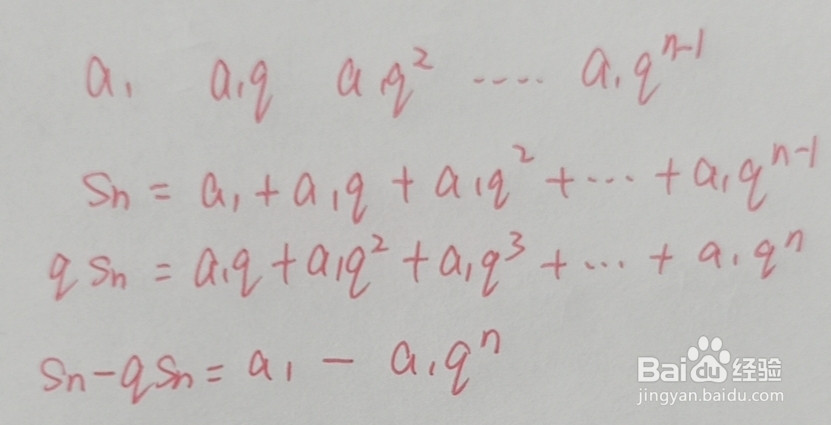 a₁ a₁q a₁q² ····· a₁qⁿ⁻¹
Sn = a₁ + a₁q + a₁q² + ··· + a₁qⁿ⁻¹
qSn = a₁q + a₁q² + a₁q³ + ··· + a₁qⁿ
Sn - qSn = a₁ - a₁qⁿ
Baidu经验
jingyan.baidu.com